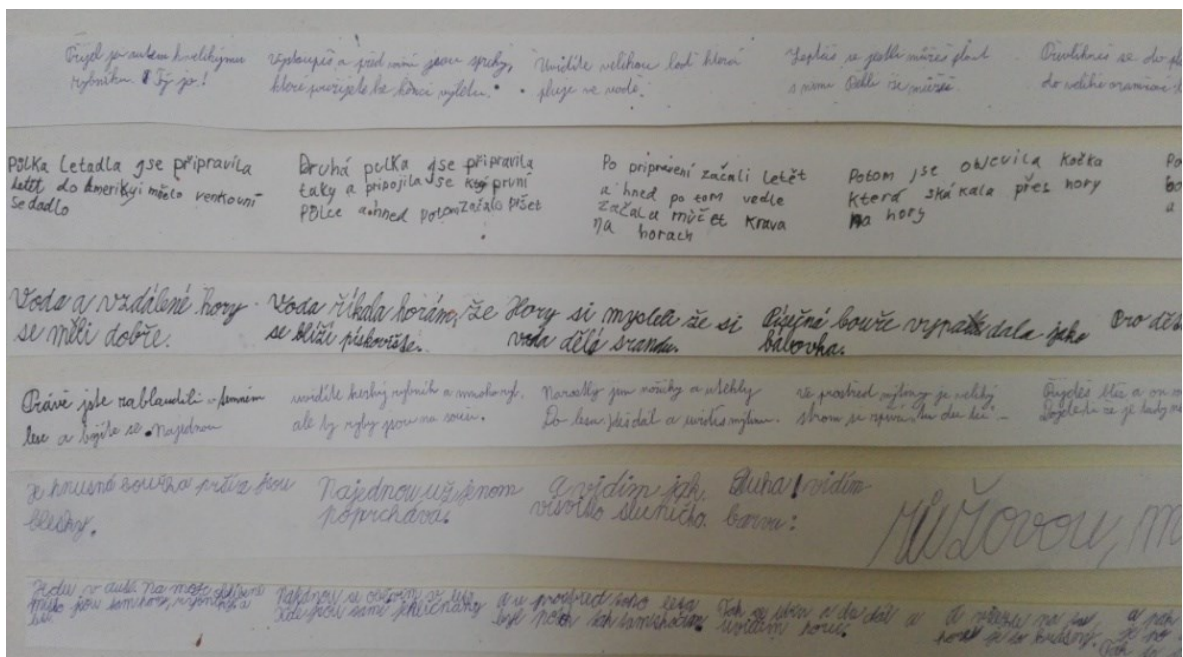 Přijel jsi autem k velikýmu
rybníku. Tý jo!
Vystoupíš a před vámi jsou sprchy,
které použijete ke konci výletu.
Uvidíte velikou loď která
pluje ve vodě.
Zeptáš se jestli můžeš plout
s nimi že můžeš.
se do
do veliké
Půlka letadla jse připravila
letět do Ameriky mělo venkovní
sedadlo
Druhá pulka jse připravila
taky a připojila se první
půlce a hned potom začalo pršet
Po připravení začali letět
a hned po tom vedle
začala mučet krava
na horach
Potom jse obevila kočka
která skákala přes hory
na hory
Po
a
Voda a vzdálené hory
se měli dobře.
Voda říkala horám, že
se blíží pískoviště.
Hory si mysleli že si
voda dělá srandu.
Písečná bouře vypadala jako
bábovka.
Pro
Právě jste zabloudili v temném
lese a bojíte se. Najednou
uvidíte hezký rybník a mnoho ryb,
ale ty ryby jsou na souši.
Narostly jim nožičky a utekly
Do lesa. Jdeš dál a uvidíš mýtinu.
ve prostřed mýtiny je veliký
strom se zpívá:
Půjdeš blíž a on
že je tady
Je hnusná bouřka právě jsou
blesky.
Najednou už jenom
poprchává.
a vidím jak
visvitlo sluníčko.
Duha! vidím
barvu:
růžovou, m
Jedu v autě. Na
jsou samí hory,
les.
Najednou se
kde jsou samé
a u prostřed toho lesa
Tak a du dál a
uvidím horu.
na
je to krásný.
a pak
je